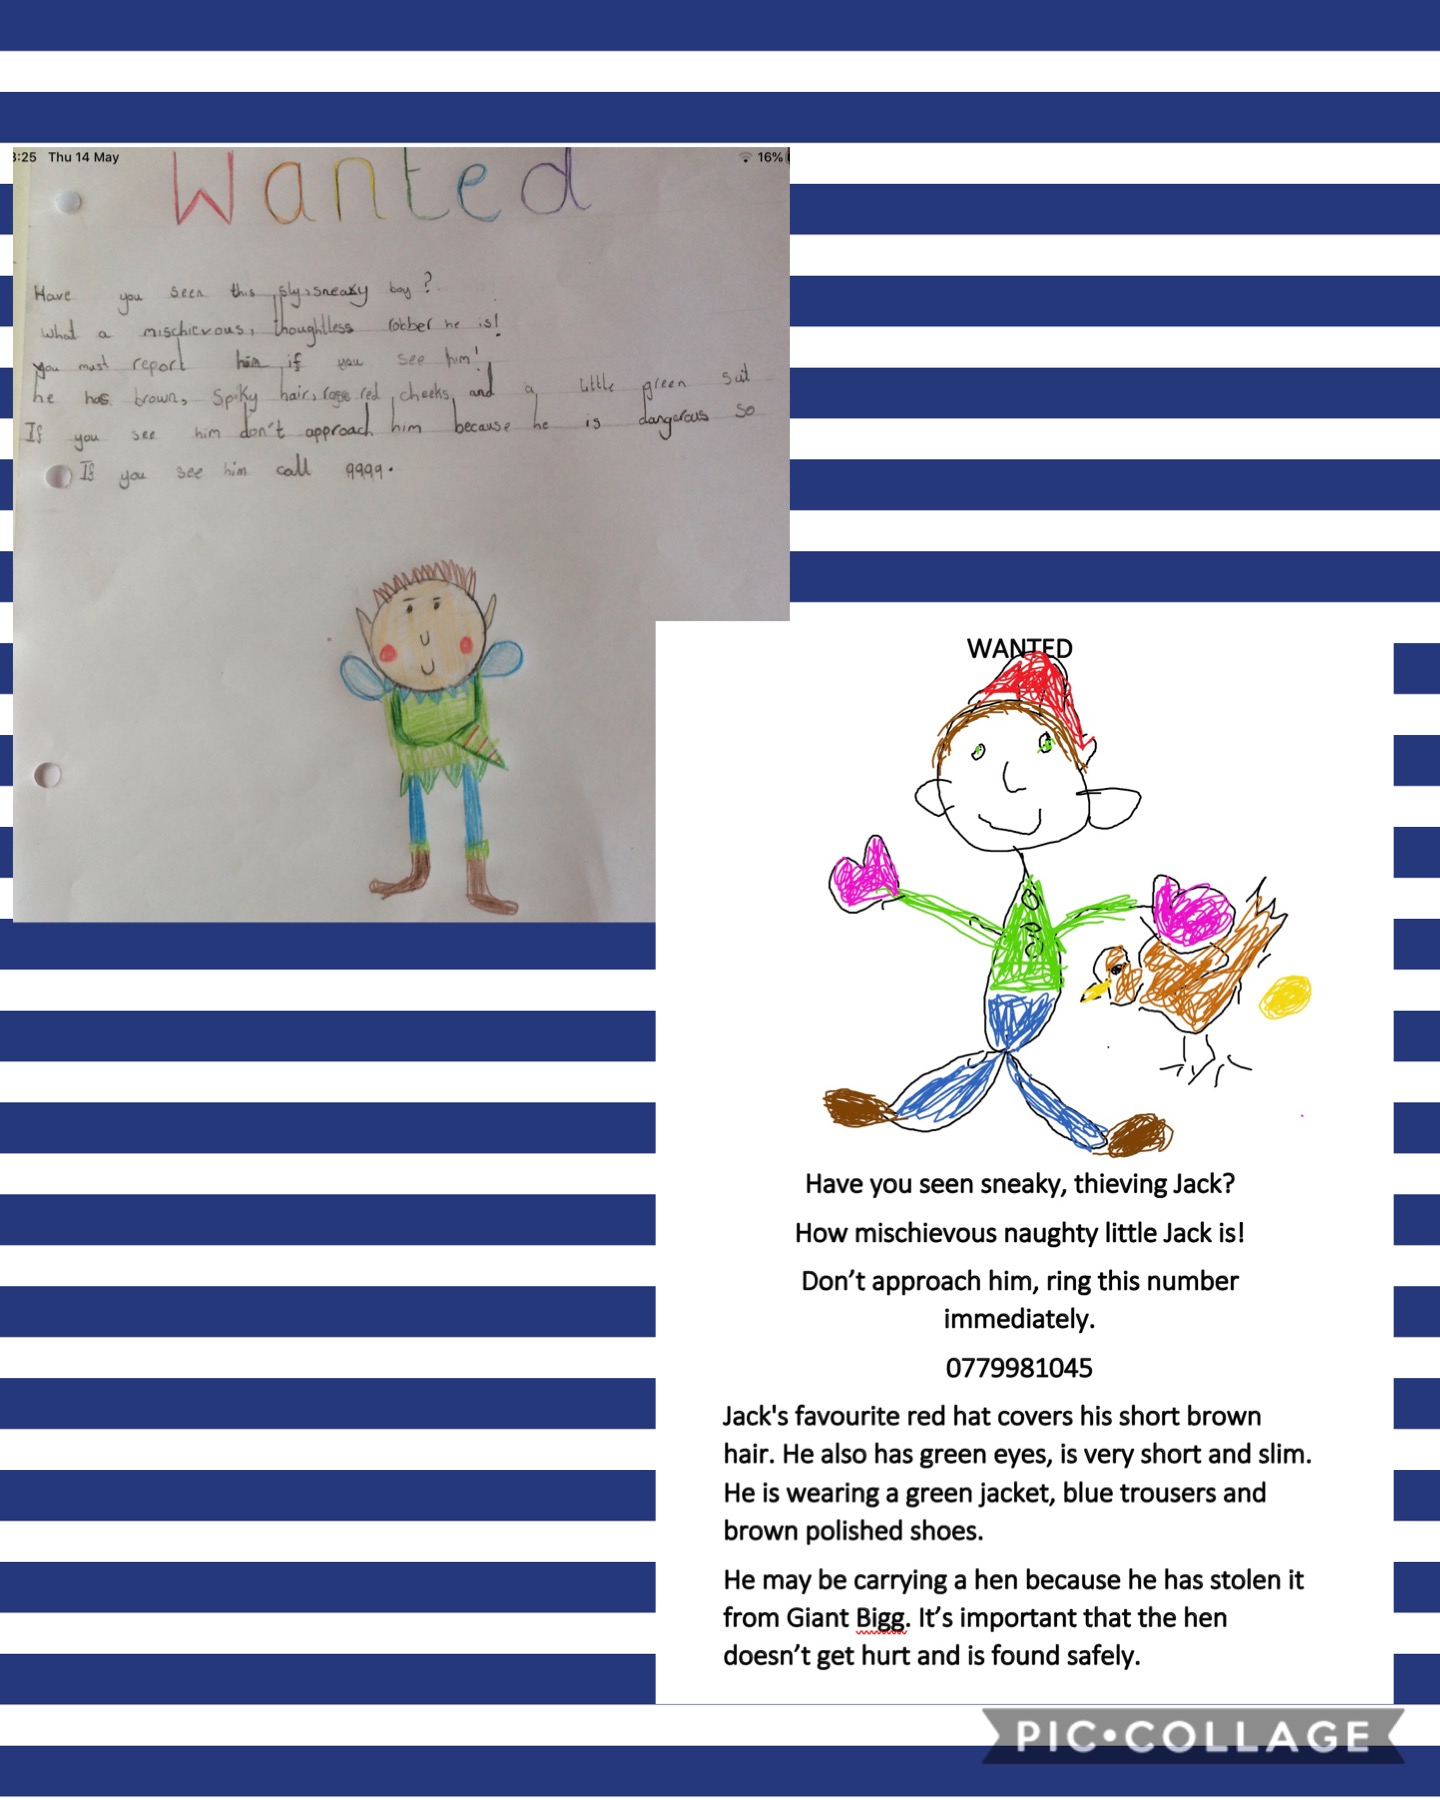 3:25 Thu 14 May
16%
Wanted
Have you seen this sly, sneaky boy?
What a mischievous, thoughtless robber he is!
you must report him if you see him!
he has brown, spiky hair, rose red cheeks, and a little green suit
If you see him don't approach him because he is dangerous so
If you see him call 9999.
WANTED
Have you seen sneaky, thieving Jack?
How mischievous naughty little Jack is!
Don’t approach him, ring this number
immediately.
0779981045
Jack's favourite red hat covers his short brown
hair. He also has green eyes, is very short and slim.
He is wearing a green jacket, blue trousers and
brown polished shoes.
He may be carrying a hen because he has stolen it
from Giant Bigg. It’s important that the hen
doesn’t get hurt and is found safely.
PIC•COLLAGE